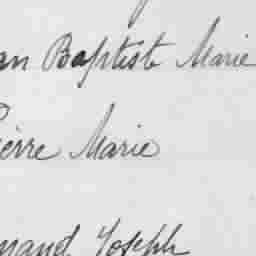 an Baptiste Marie
ierre Marie
mand Joseph